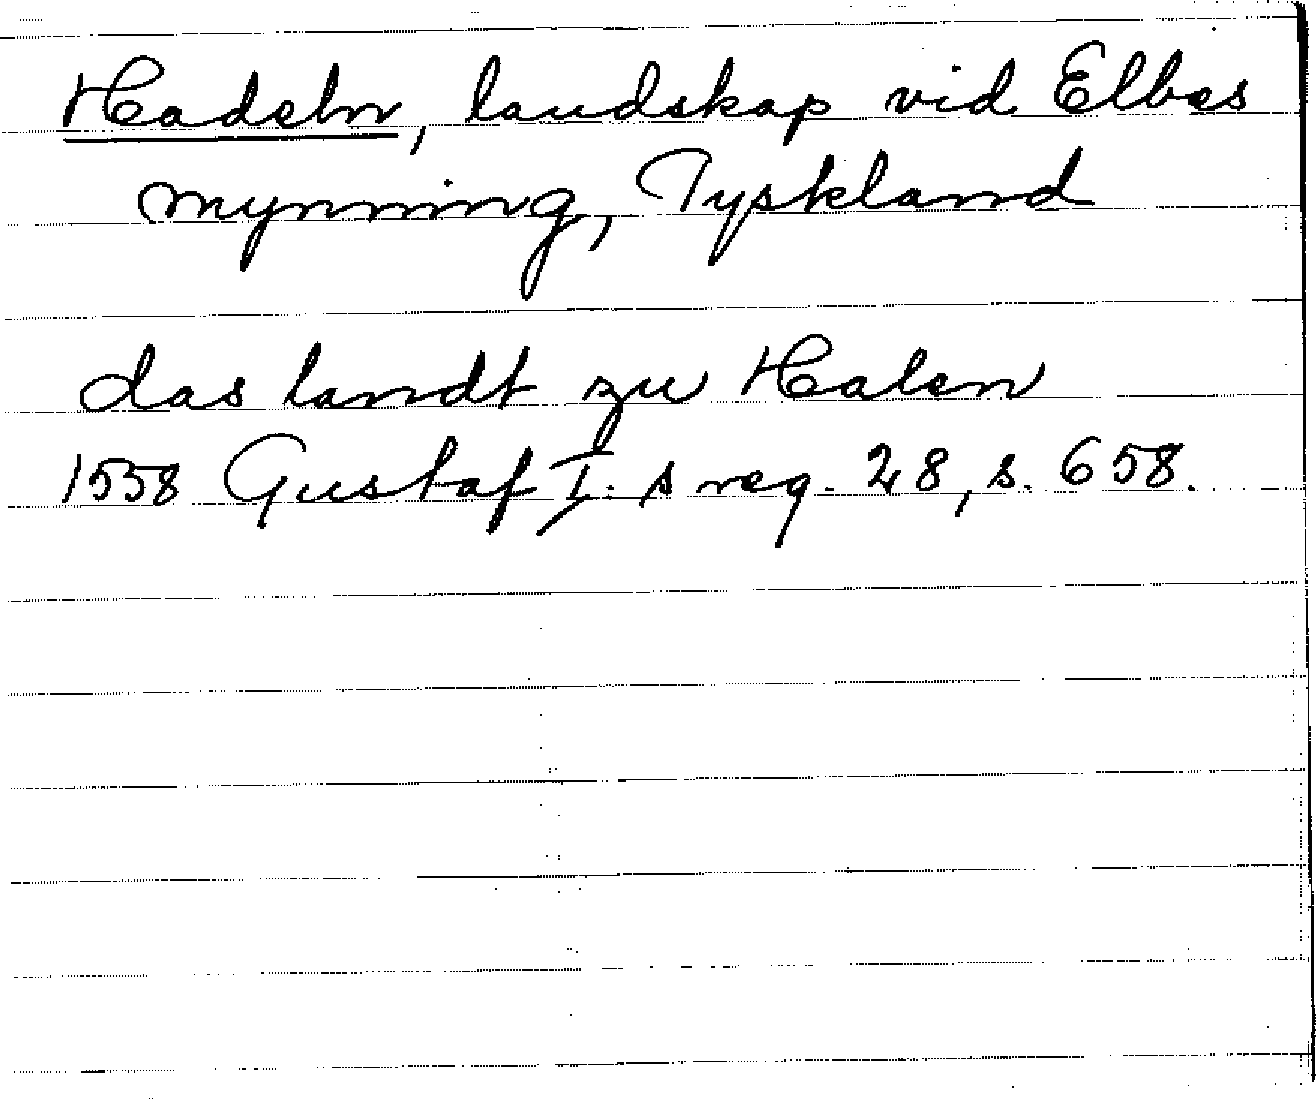 Hadeln, landskap vid Elbes
mynning, Tyskland
das landt zu Halen
1558 Gustaf I: s reg. 28, s. 658.